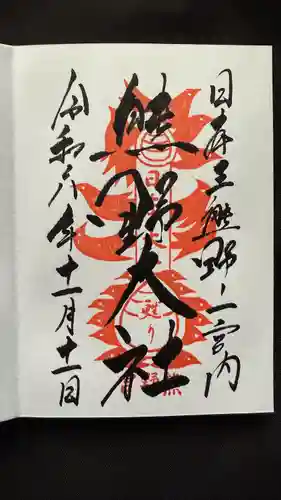 日本三熊野ノ一宮内
熊野大社
甦り
令和六年十一月十一日